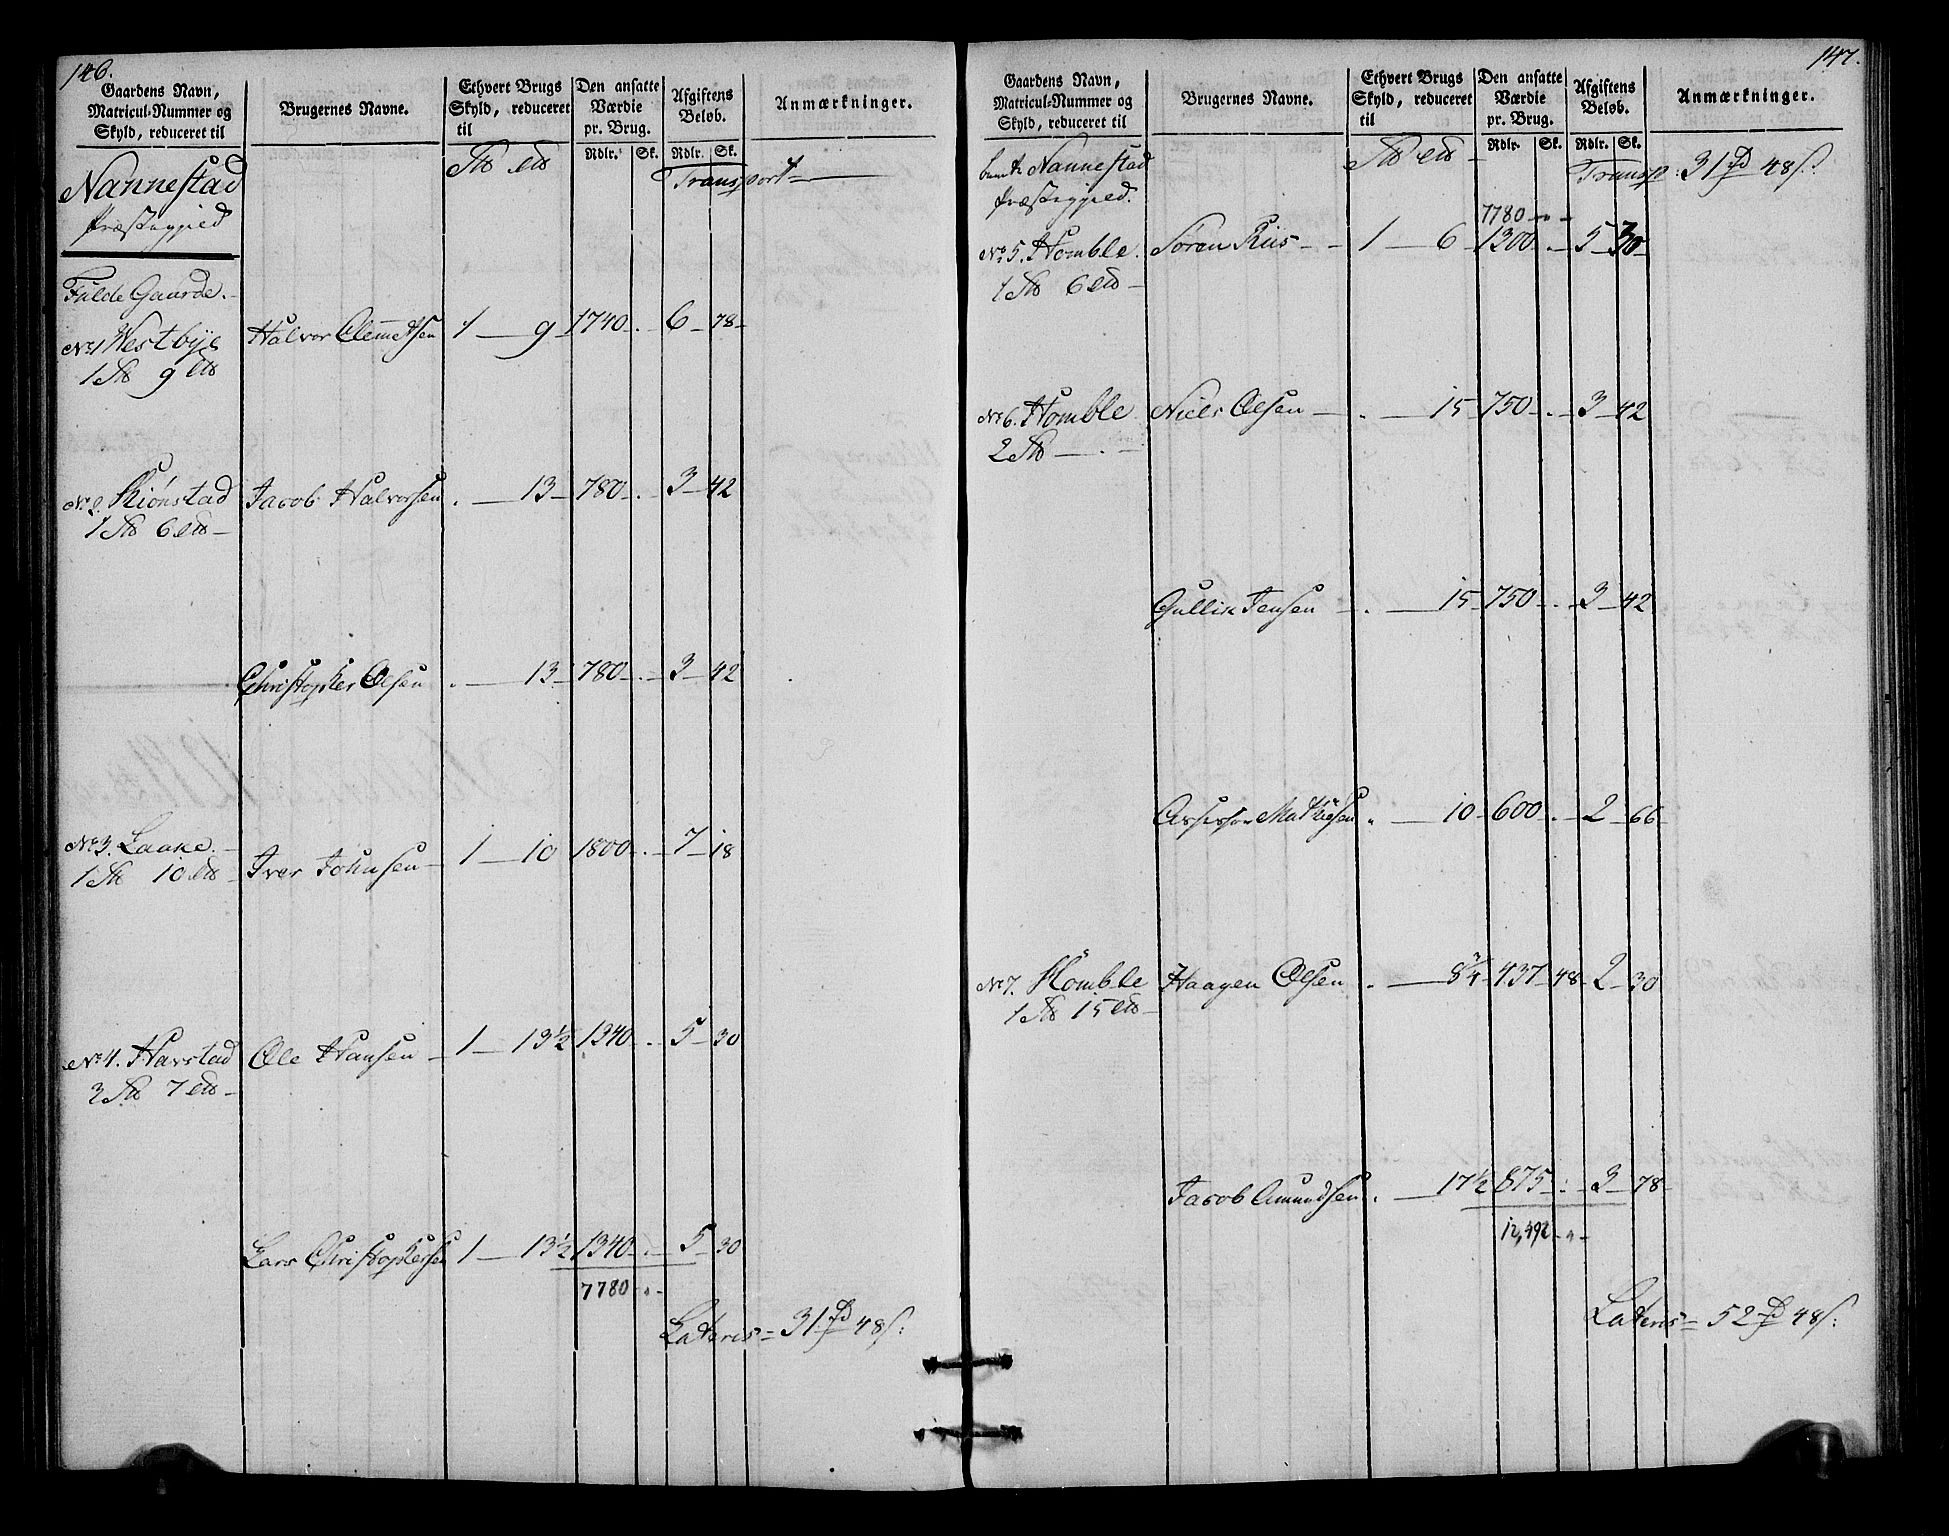 146.
Gaardens Navn, Matricul-Nummer og Skyld, reduceret til
Brugernes Navne.
Ethvert Brugs Skyld, reduceret til
Den ansatte Værdie pr. Brug.
Afgiftens Beløb.
Anmærkninger.
Rdlr. Sk. Rdlr. Sk.
Nannestad Transport
Præstegjeld
Fulde Gaarde.
No 1 Westbÿe Halvor Clemetsen 1 9 1740 . 6 78
1 9
No 2. Skiönstad Jacob Halvorsen . 13 780 . 3 42
1 6
Christopher Olsen . 13 780 . 3 42
No 3. Laake. Iver Johnsen 1 10 1800 . 7 18
1 10
No 4. Harstad Ole Hansen 1 13½ 1340 . 5 30
3 7
Lars Christophersen 1 13½ 1340 . 5 30
7780
Lateris = 31 48
147.
Gaardens Navn, Matricul-Nummer og Skyld, reduceret til
Brugernes Navne.
Ethvert Brugs Skyld, reduceret til
Den ansatte Værdie pr. Brug.
Afgiftens Beløb.
Anmærkninger.
Rdlr. Sk. Rdlr. Sk.
Nannestad Transp: 31 48
Præstegjield.
7780
No 5. Homble. Sören Riis 1 6 1300 . 5 30
1 6
No 6. Homble Niels Olsen . 15 750 . 3 42
2
Gullik Jensen . 15 750 . 3 42
Assessor Mathiesen . 10 600 . 2 66
No 7. Homble Haagen Olsen . 8¾ 437 48 2 30
1 15
Jacob Amundsen . 17½ 875 . 3 78
12,492
Lateris = 52 48